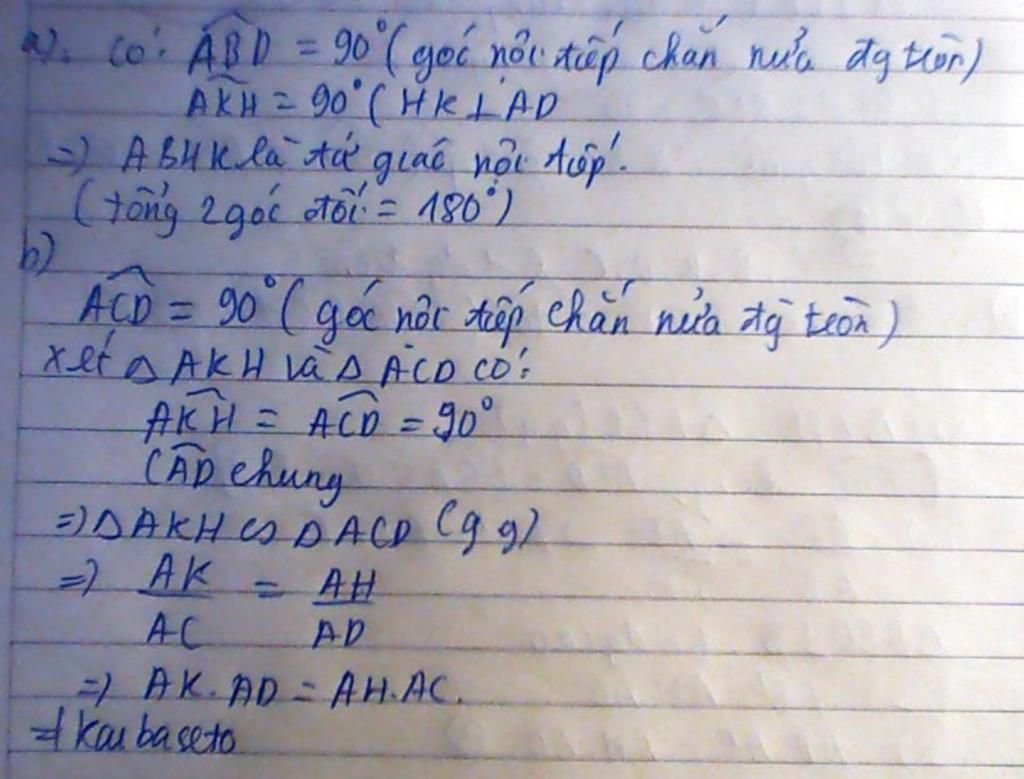 a). Có: ABD = 90° (góc nội tiếp chắn nửa đg tròn)
AKH = 90° (HK ⊥ AD
=> ABHK là tứ giác nội tiếp.
(tổng 2 góc đối = 180°)
b)
ACD = 90° (góc nội tiếp chắn nửa đg tròn)
Xét △AKH và △ACD có:
AKH = ACD = 90°
CAD chung
=> △AKH ∽ △ACD (g g)
=> AK/AC = AH/AD
=> AK.AD = AH.AC.